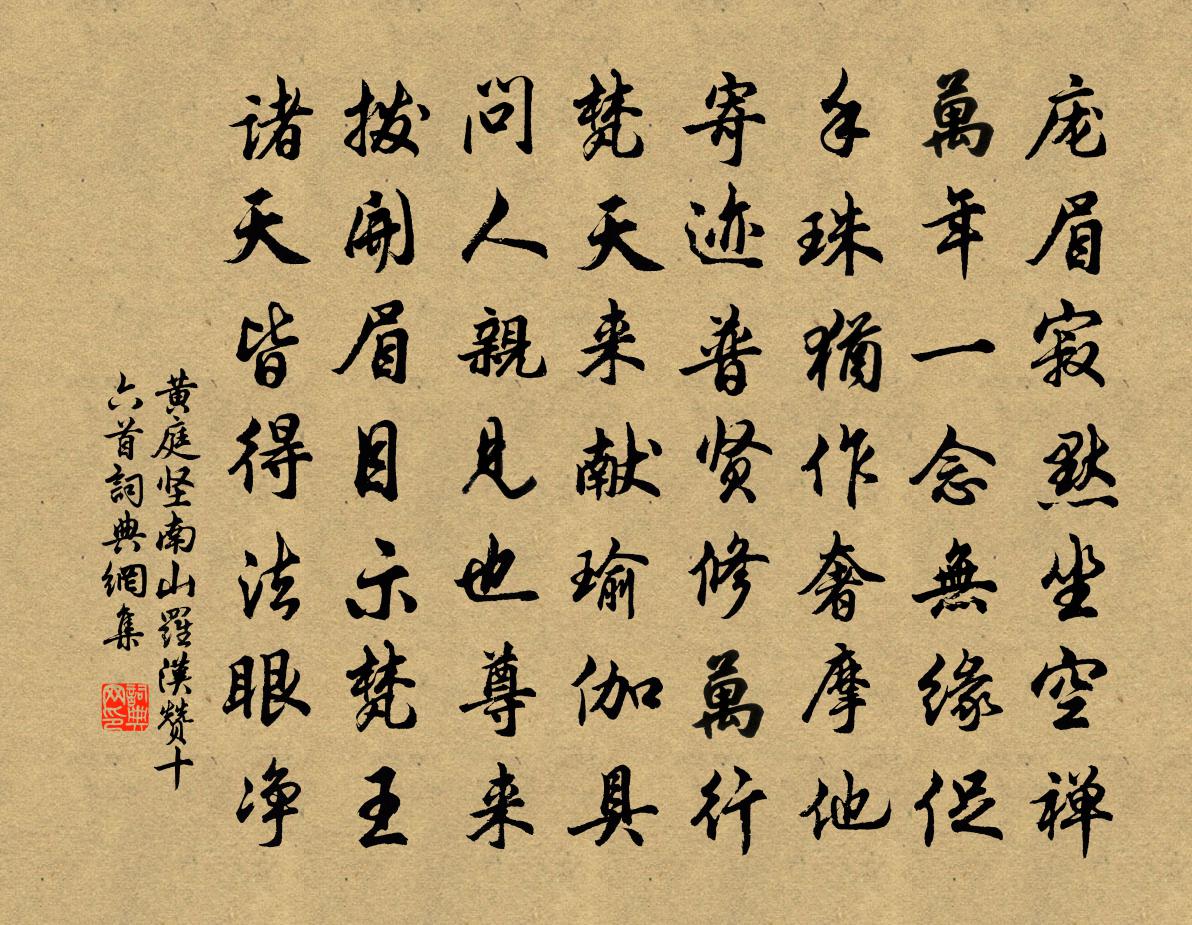 庞眉寂默坐空禅
萬年一念無緣促
手珠猶作奢摩他
寄迹普贤修萬行
梵天来献瑜伽具
問人親見也尊来
拨開眉目示梵王
诸天皆得法眼净
黄庭坚南山羅漢赞十
六首詞典網集
詞典
网印